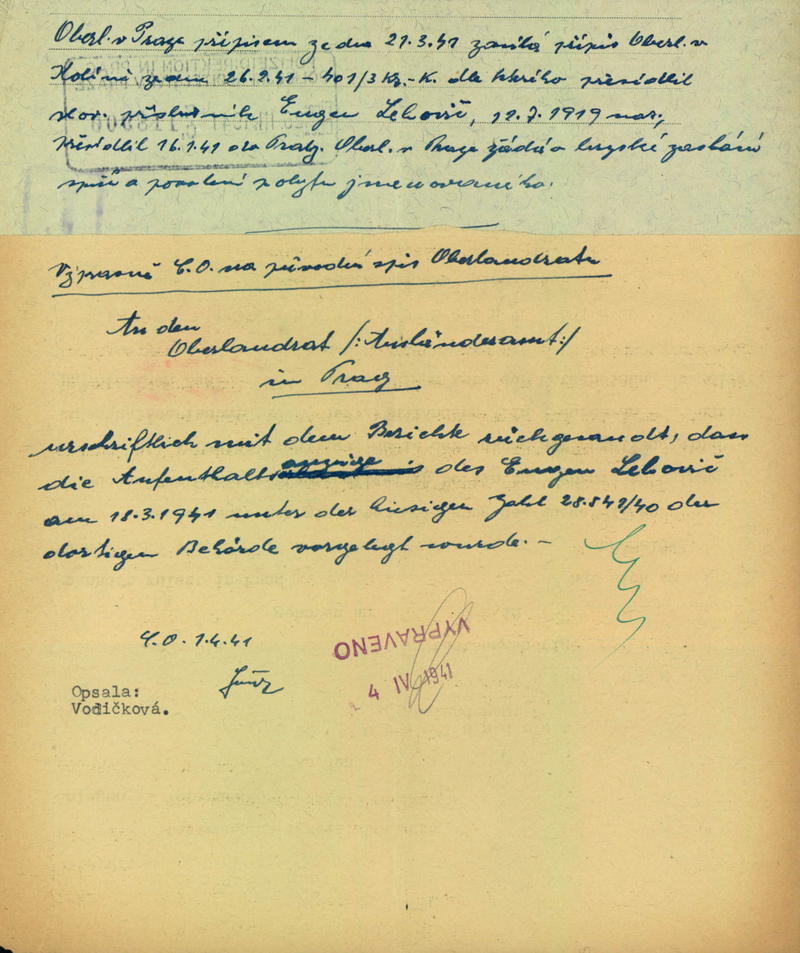 Oberl. v Praze přípisem ze dne 21.3.41 zasílá přípis Oberl. v
Kolíně ze dne 26.2.41 – 401/3 Kg.-K. dle kterého přesídlil
slov. příslušník Eugen Lebovič, 12.7.1919 nar.,
přesídlil 16.1.41 do Prahy. Oberl. v Praze žádá o brzské zaslání
spisů a povolení pobytu jmenovaného.
Výpravně Č.O. na původní spis Oberlandratu
An den
Oberlandrat /:Ausländeramt:/
in Prag
urschriftlich mit dem Berichte rückgesandt, dass
die Aufenthaltsanzeige des Eugen Lebovič
am 18.3.1941 unter der hiesigen Zahl 28.842/40 der
dortigen Behörde vorgelegt wurde. –
Č.O. 1.4.41
VYPRAVENO
4 IV 1941
Opsala:
Vodičková.